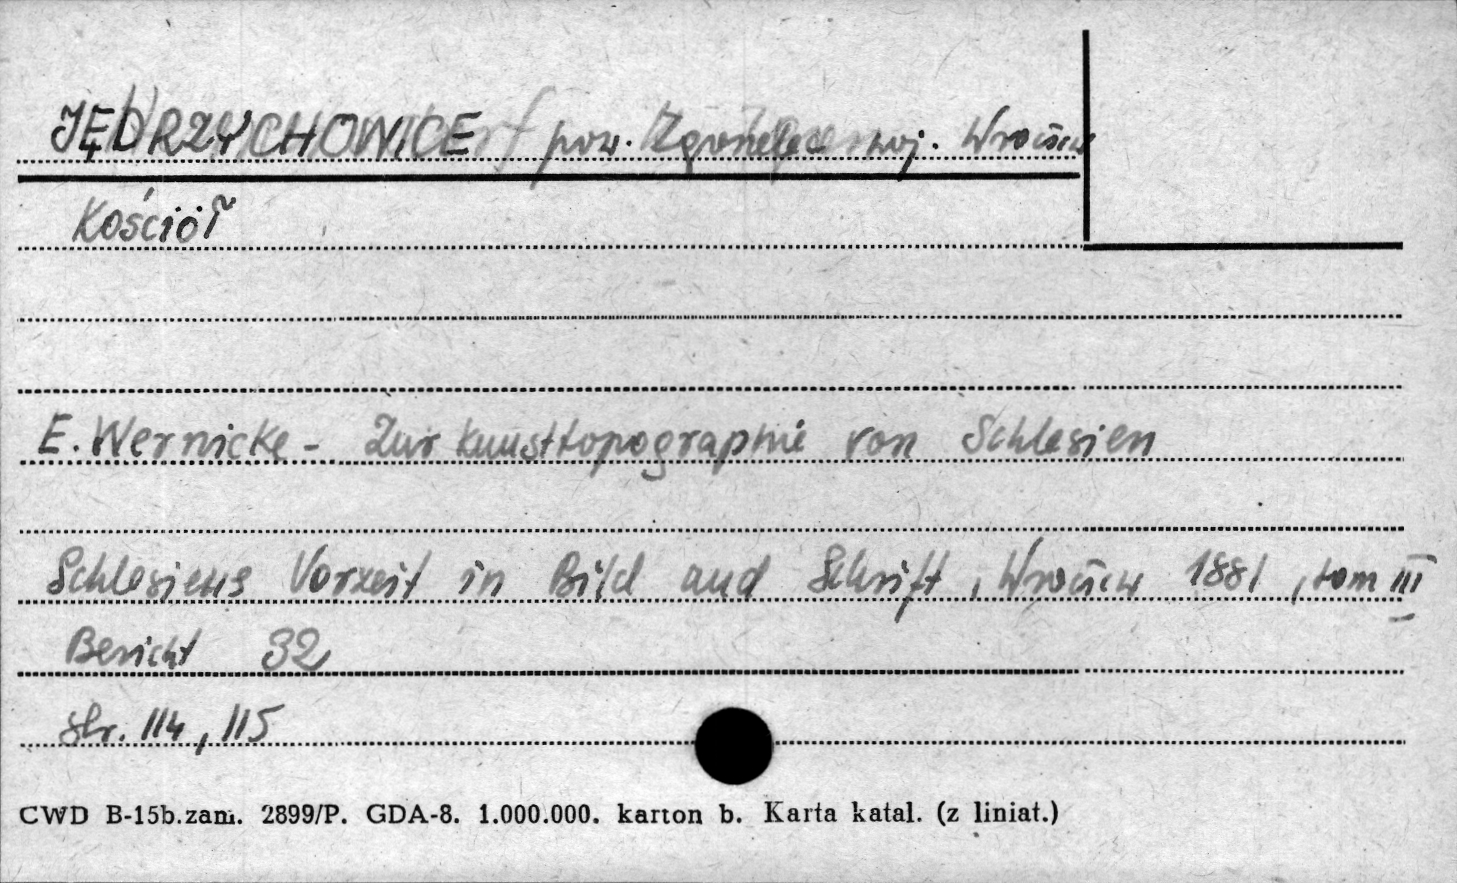 JĘDRZYCHOWICE pow. Zgorzelec woj. Wrocław
Kościół
E. Wernicke - Zur Kunsttopographie von Schlesien
Schlesiens Vorzeit in Bild und Schrift, Wrocław 1881, tom III
Bericht 32
str. 114, 115
CWD B-15b.zam. 2899/P. GDA-8. 1.000.000. karton b. Karta katal. (z liniat.)